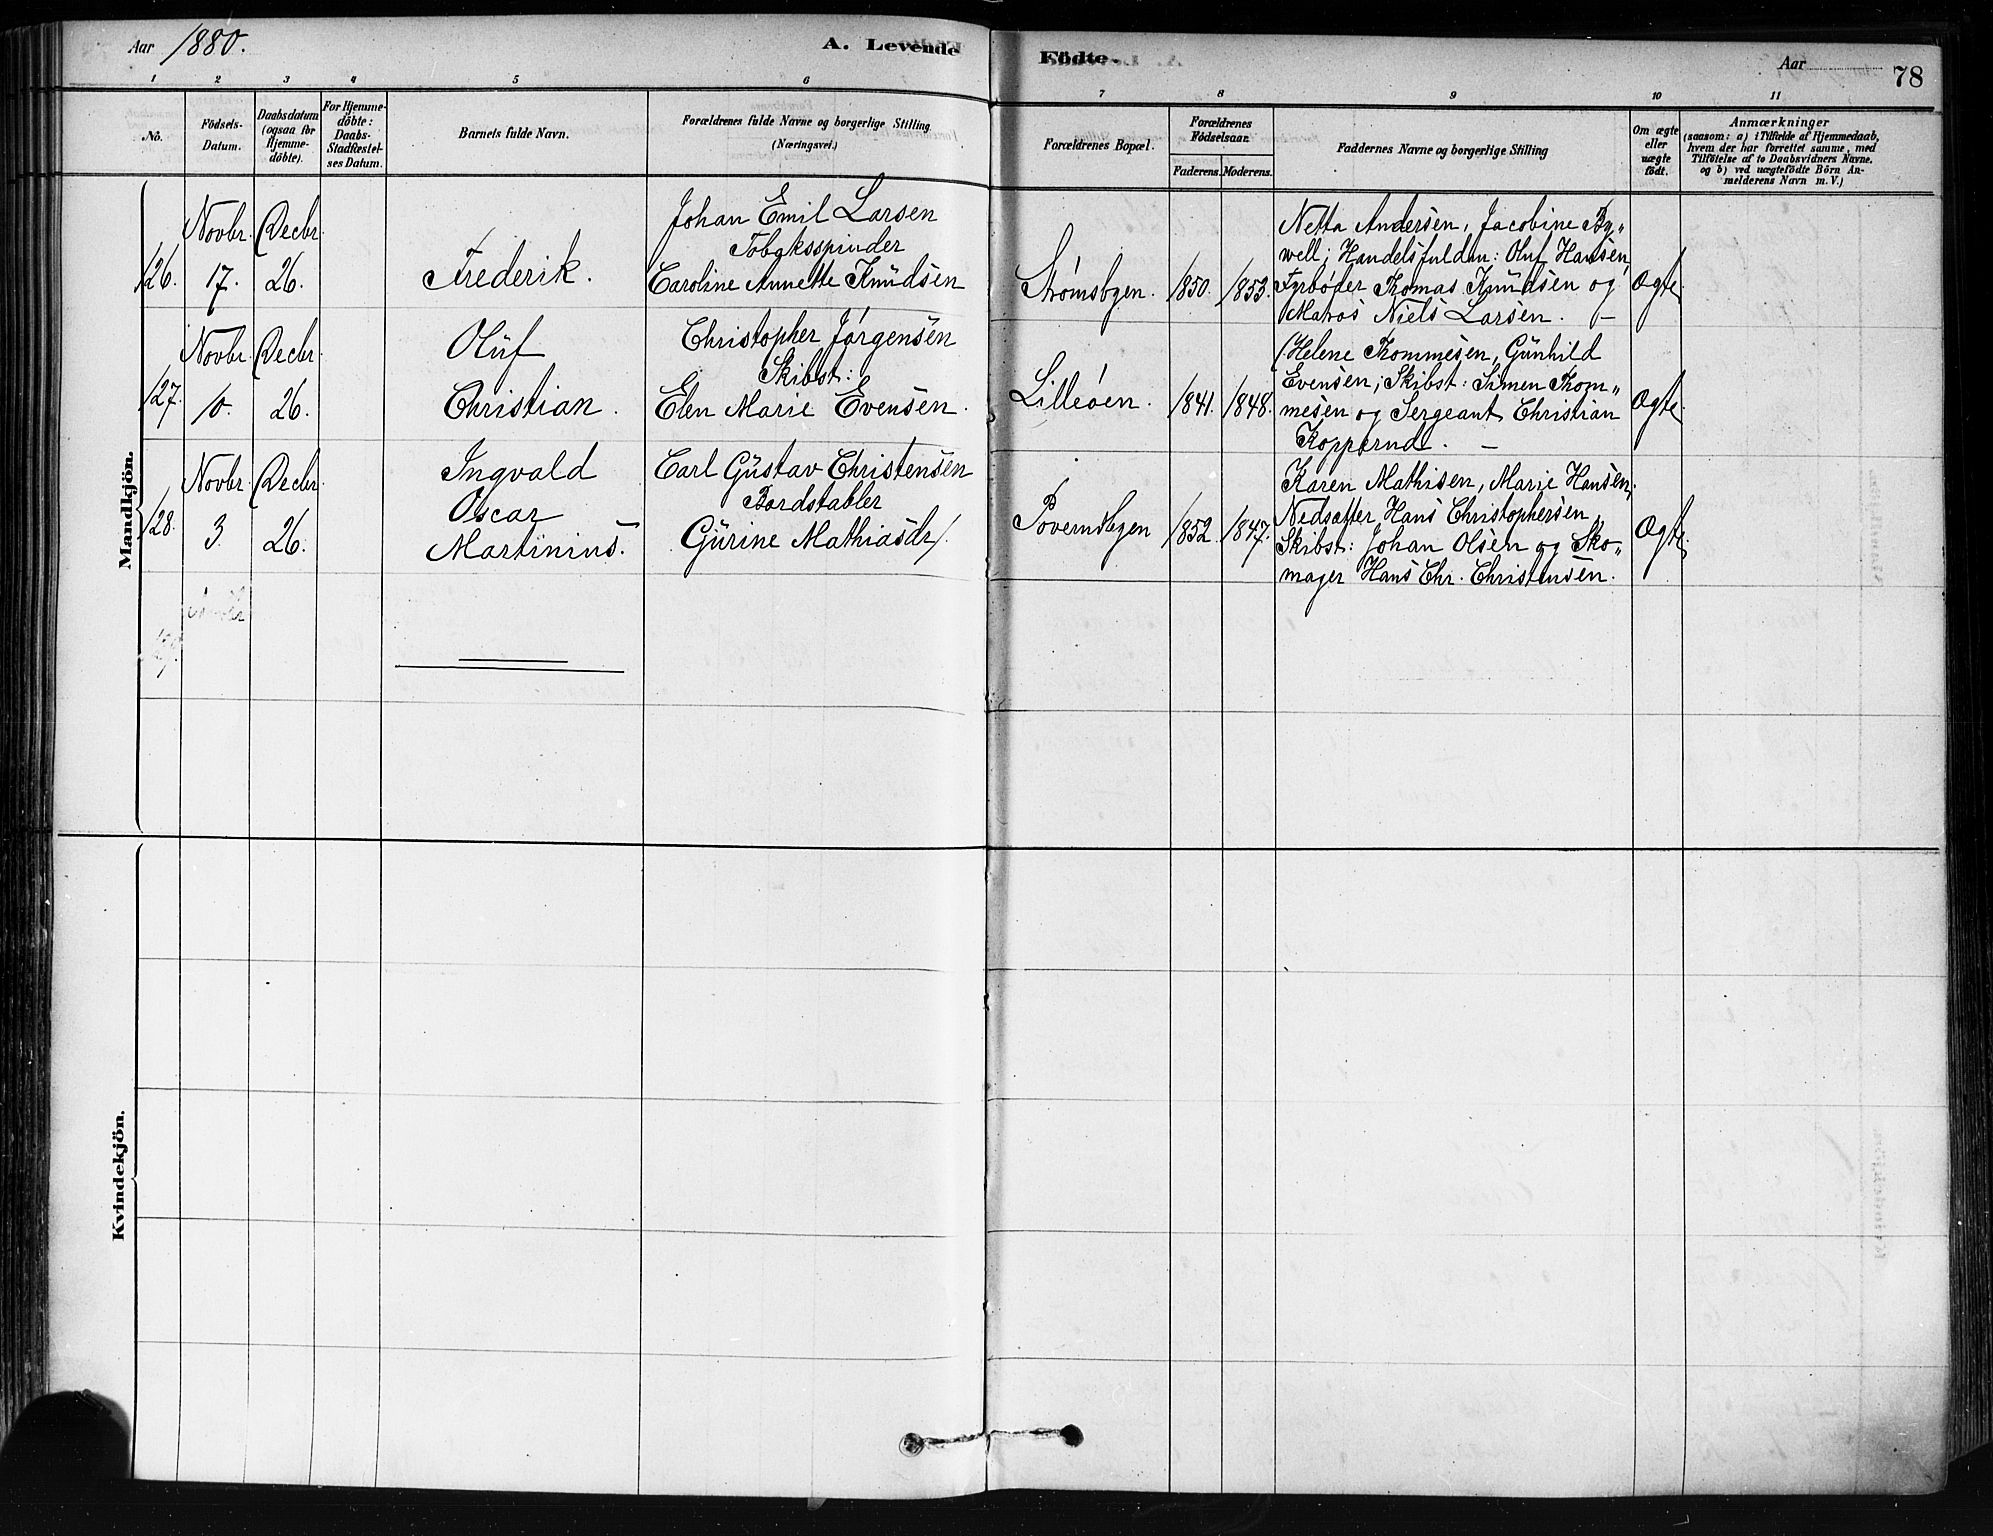 Aar 1880.
A. Levende
Födte.
Aar
78
1 2 3 4 5 6 7 8 9 10 11
No.
Födsels-
Datum.
Daabsdatum
(ogsaa for
Hjemme-
döbte).
For Hjemme-
döbte:
Daabs-
Stadfæstel-
ses Datum.
Barnets fulde Navn.
Forældrenes fulde Navne og borgerlige Stilling
(Næringsvei.)
Forældrenes Bopæl.
Forældrenes
Födselsaar.
Faderens. Moderens.
Faddernes Navne og borgerlige Stilling
Om ægte
eller
uægte
födt.
Anmærkninger
(saasom: a) i Tilfælde af Hjemmedaab,
hvem der har forrettet samme, med
Tilföielse af to Daabsvidners Navne,
og b) ved uægtefödte Börn An-
melderens Navn m. V.)
Mandkjön.
126.
Novbr.
17.
Decbr.
26.
Frederik.
Johan Emil Larsen
Tobaksspinder
Caroline Annette Knudsen
Strømsbyen.
1850.
1853.
Netta Andersen, Jacobine By-
well; Handelsfuldm: Oluf Hansen,
Fyrbøter Thomas Knudsen og
Matros Niels Larsen. –
Ægte.
127.
Novbr.
10.
Decbr.
26.
Oluf
Christian.
Christopher Jørgensen
Skibst:
Elen Marie Evensen.
Lilleøen.
1841.
1848.
Helene Thommesen, Gunhild
Evensen; Skibst: Simen Thom-
mesen og Sergeant Christian
Kopperud. –
Ægte.
128.
Novbr.
3.
Decbr.
26.
Ingvald
Oscar
Martinius.
Carl Gustav Christensen
Bordstabler
Gurine Mathiasdr.
Poverudbyen
1852.
1847.
Karen Mathisen, Marie Hansen;
Nedsætter Hans Christophersen,
Skibst: Johan Olsen og Sko-
mager Hans Chr. Christensen.
Ægte.
Kvindekjön.